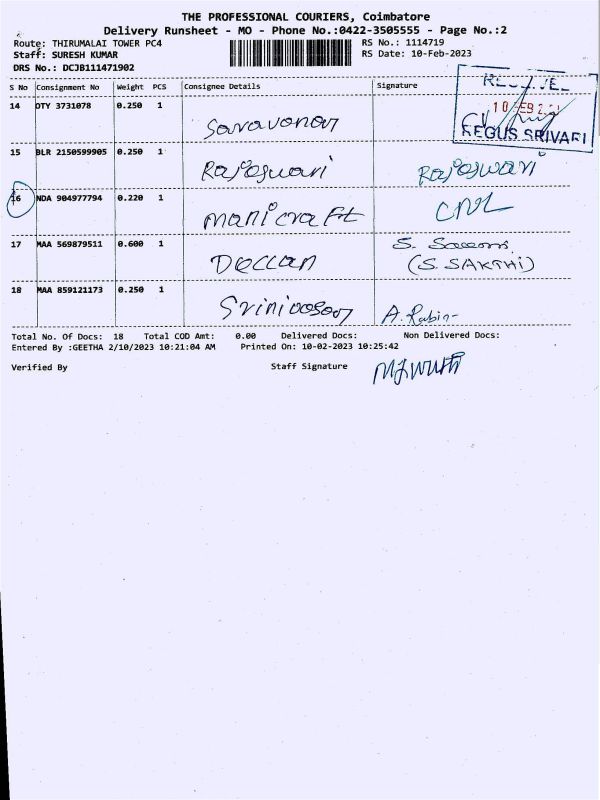 THE PROFESSIONAL COURIERS, Coimbatore
Delivery Runsheet - MO - Phone No.:0422-3505555 - Page No.:2
Route: THIRUMALAI TOWER PC4 RS No.: 1114719
Staff: SURESH KUMAR RS Date: 10-Feb-2023
DRS No.: DCJB111471902
S No Consignment No Weight PCS Consignee Details Signature
14 OTY 3731078 0.250 1 Saravanan
10 FEB
REGUS SRIVARI
15 BLR 2150599905 0.250 1 Rajeswari Rajeswari
16 NDA 904977794 0.220 1 manicraft
17 MAA 569879511 0.600 1 Deccan S.
(S. SAKTHI)
18 MAA 859121173 0.250 1 Srinivasan A. Rabin
Total No. Of Docs: 18 Total COD Amt: 0.00 Delivered Docs: Non Delivered Docs:
Entered By :GEETHA 2/10/2023 10:21:04 AM Printed On: 10-02-2023 10:25:42
Verified By Staff Signature